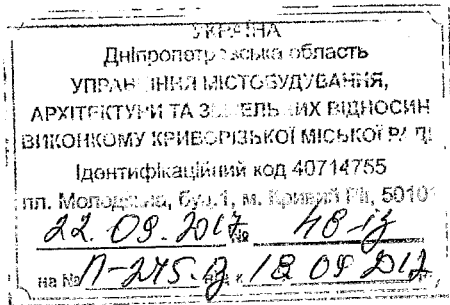 УКРАЇНА
Дніпропетровська область
УПРАВЛІННЯ МІСТОБУДУВАННЯ,
АРХІТЕКТУРИ ТА ЗЕМЕЛЬНИХ ВІДНОСИН
ВИКОНКОМУ КРИВОРІЗЬКОЇ МІСЬКОЇ РАДИ
Ідентифікаційний код 40714755
пл. Молодіжна, буд.1, м. Кривий Ріг, 50101
22.09.2017 №
на №